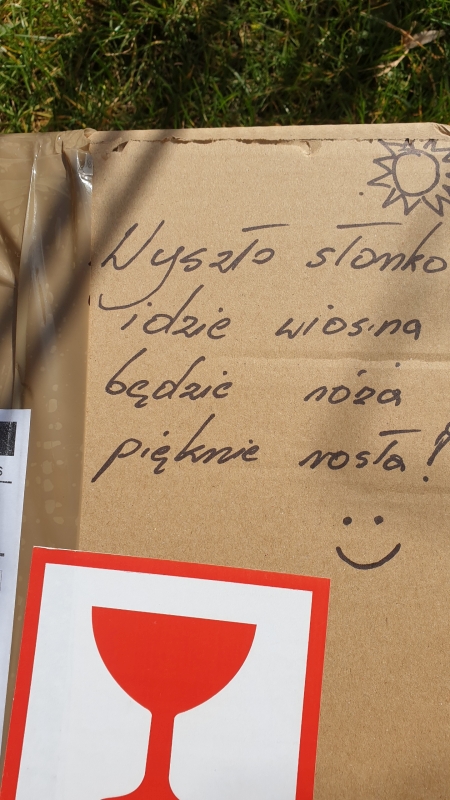 Wyszło słonko
idzie wiosna
będzie róża
pięknie rosła!
S